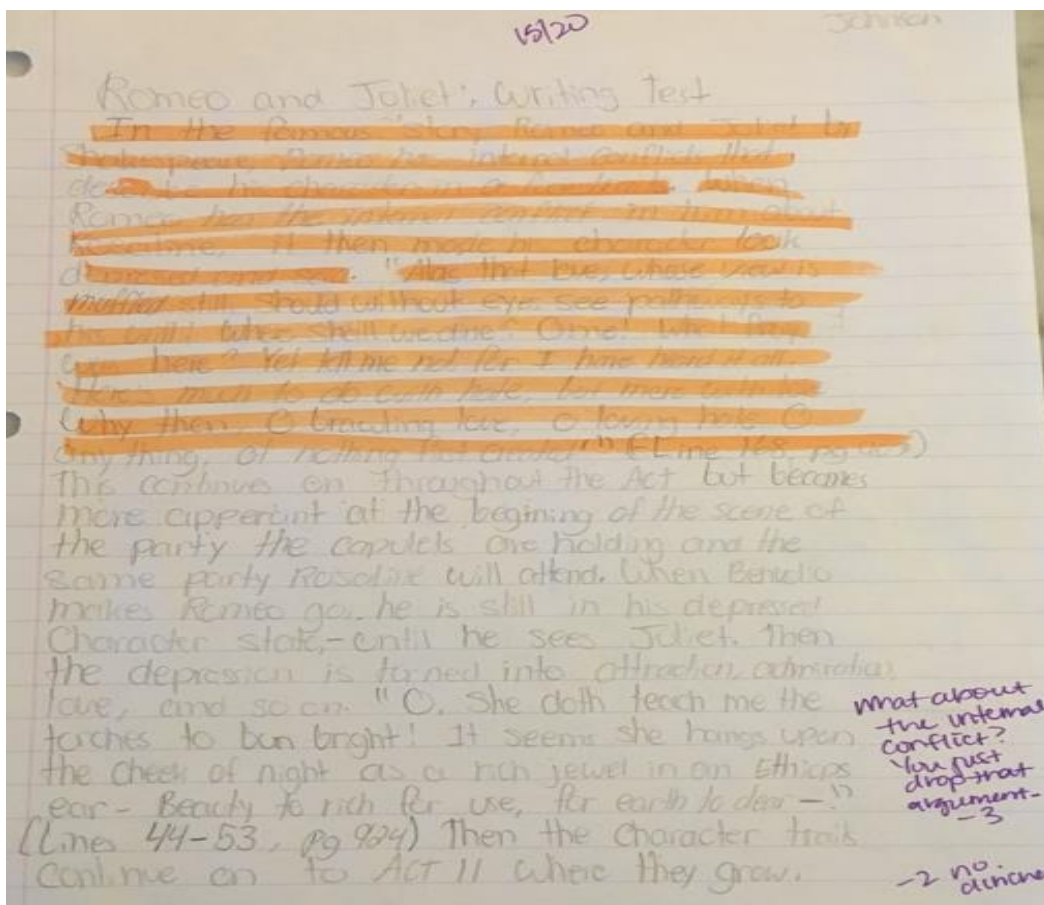 15/20
Johnson
Romeo and Joliet: Writing Test
In the famous story Romeo and Joliet by
Shakespeare, Romeo has internal conflicts that
describe his character in a few traits. When
Romeo has the internal conflict in him about
Rosaline, it then made his character look
depressed and sad. "Alas that love, whose view is
muffled still should without eyes see pathways to
his will! Where shall we dine? O me! What fray
was here? Yet tell me not for I have heard it all.
Here's much to do with hate, but more with love
Why then, O brawling love, O loving hate O
any thing, of nothing first created" (Line 168, pg
This continues on throughout the Act but becomes
more appertint at the begining of the scene of
the party the capulets are holding and the
same party Rosaline will attend. When Benvolio
makes Romeo go, he is still in his depressed
Character state,-until he sees Joliet. Then
the depression is turned into attraction, admiration,
love, and so on. "O, She doth teach me the
torches to bun bright! It seems she hangs upon
the cheek of night as a rich jewel in an Ethiops
ear - Beauty to rich for use, for earth to dear -"
(Lines 44-53, pg 924) Then the Character traits
continue on to ACT II where they grow.
what about
the internal
conflict?
You just
drop that
argument-
-3
-2 no